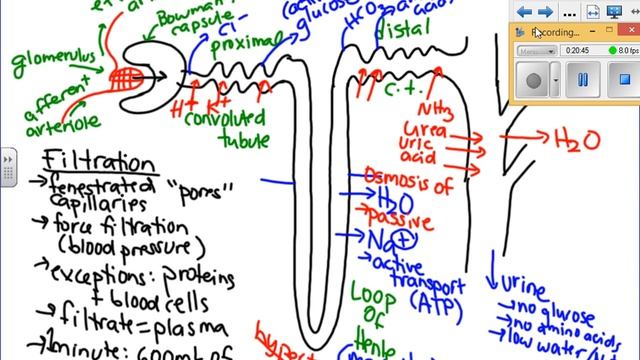 Bowman
capsule
Cl-
glucose
HCO3
acids
glomerulus
proximal
distal
afferent
arteriole
H+
K+
convoluted
tubule
c.t.
NH3
urea
uric
acid
H2O
Recording...
Menu
00:20:45
8.0 fps
Filtration
fenestrated "pores"
capillaries
force filtration
(blood pressure)
exceptions: proteins
+ blood cells
filtrate=plasma
1minute: 600ml of
Osmosis of
H2O
passive
Na+
active
transport
(ATP)
LOOP
OF
Henle
urine
no glucose
no amino acids
low water